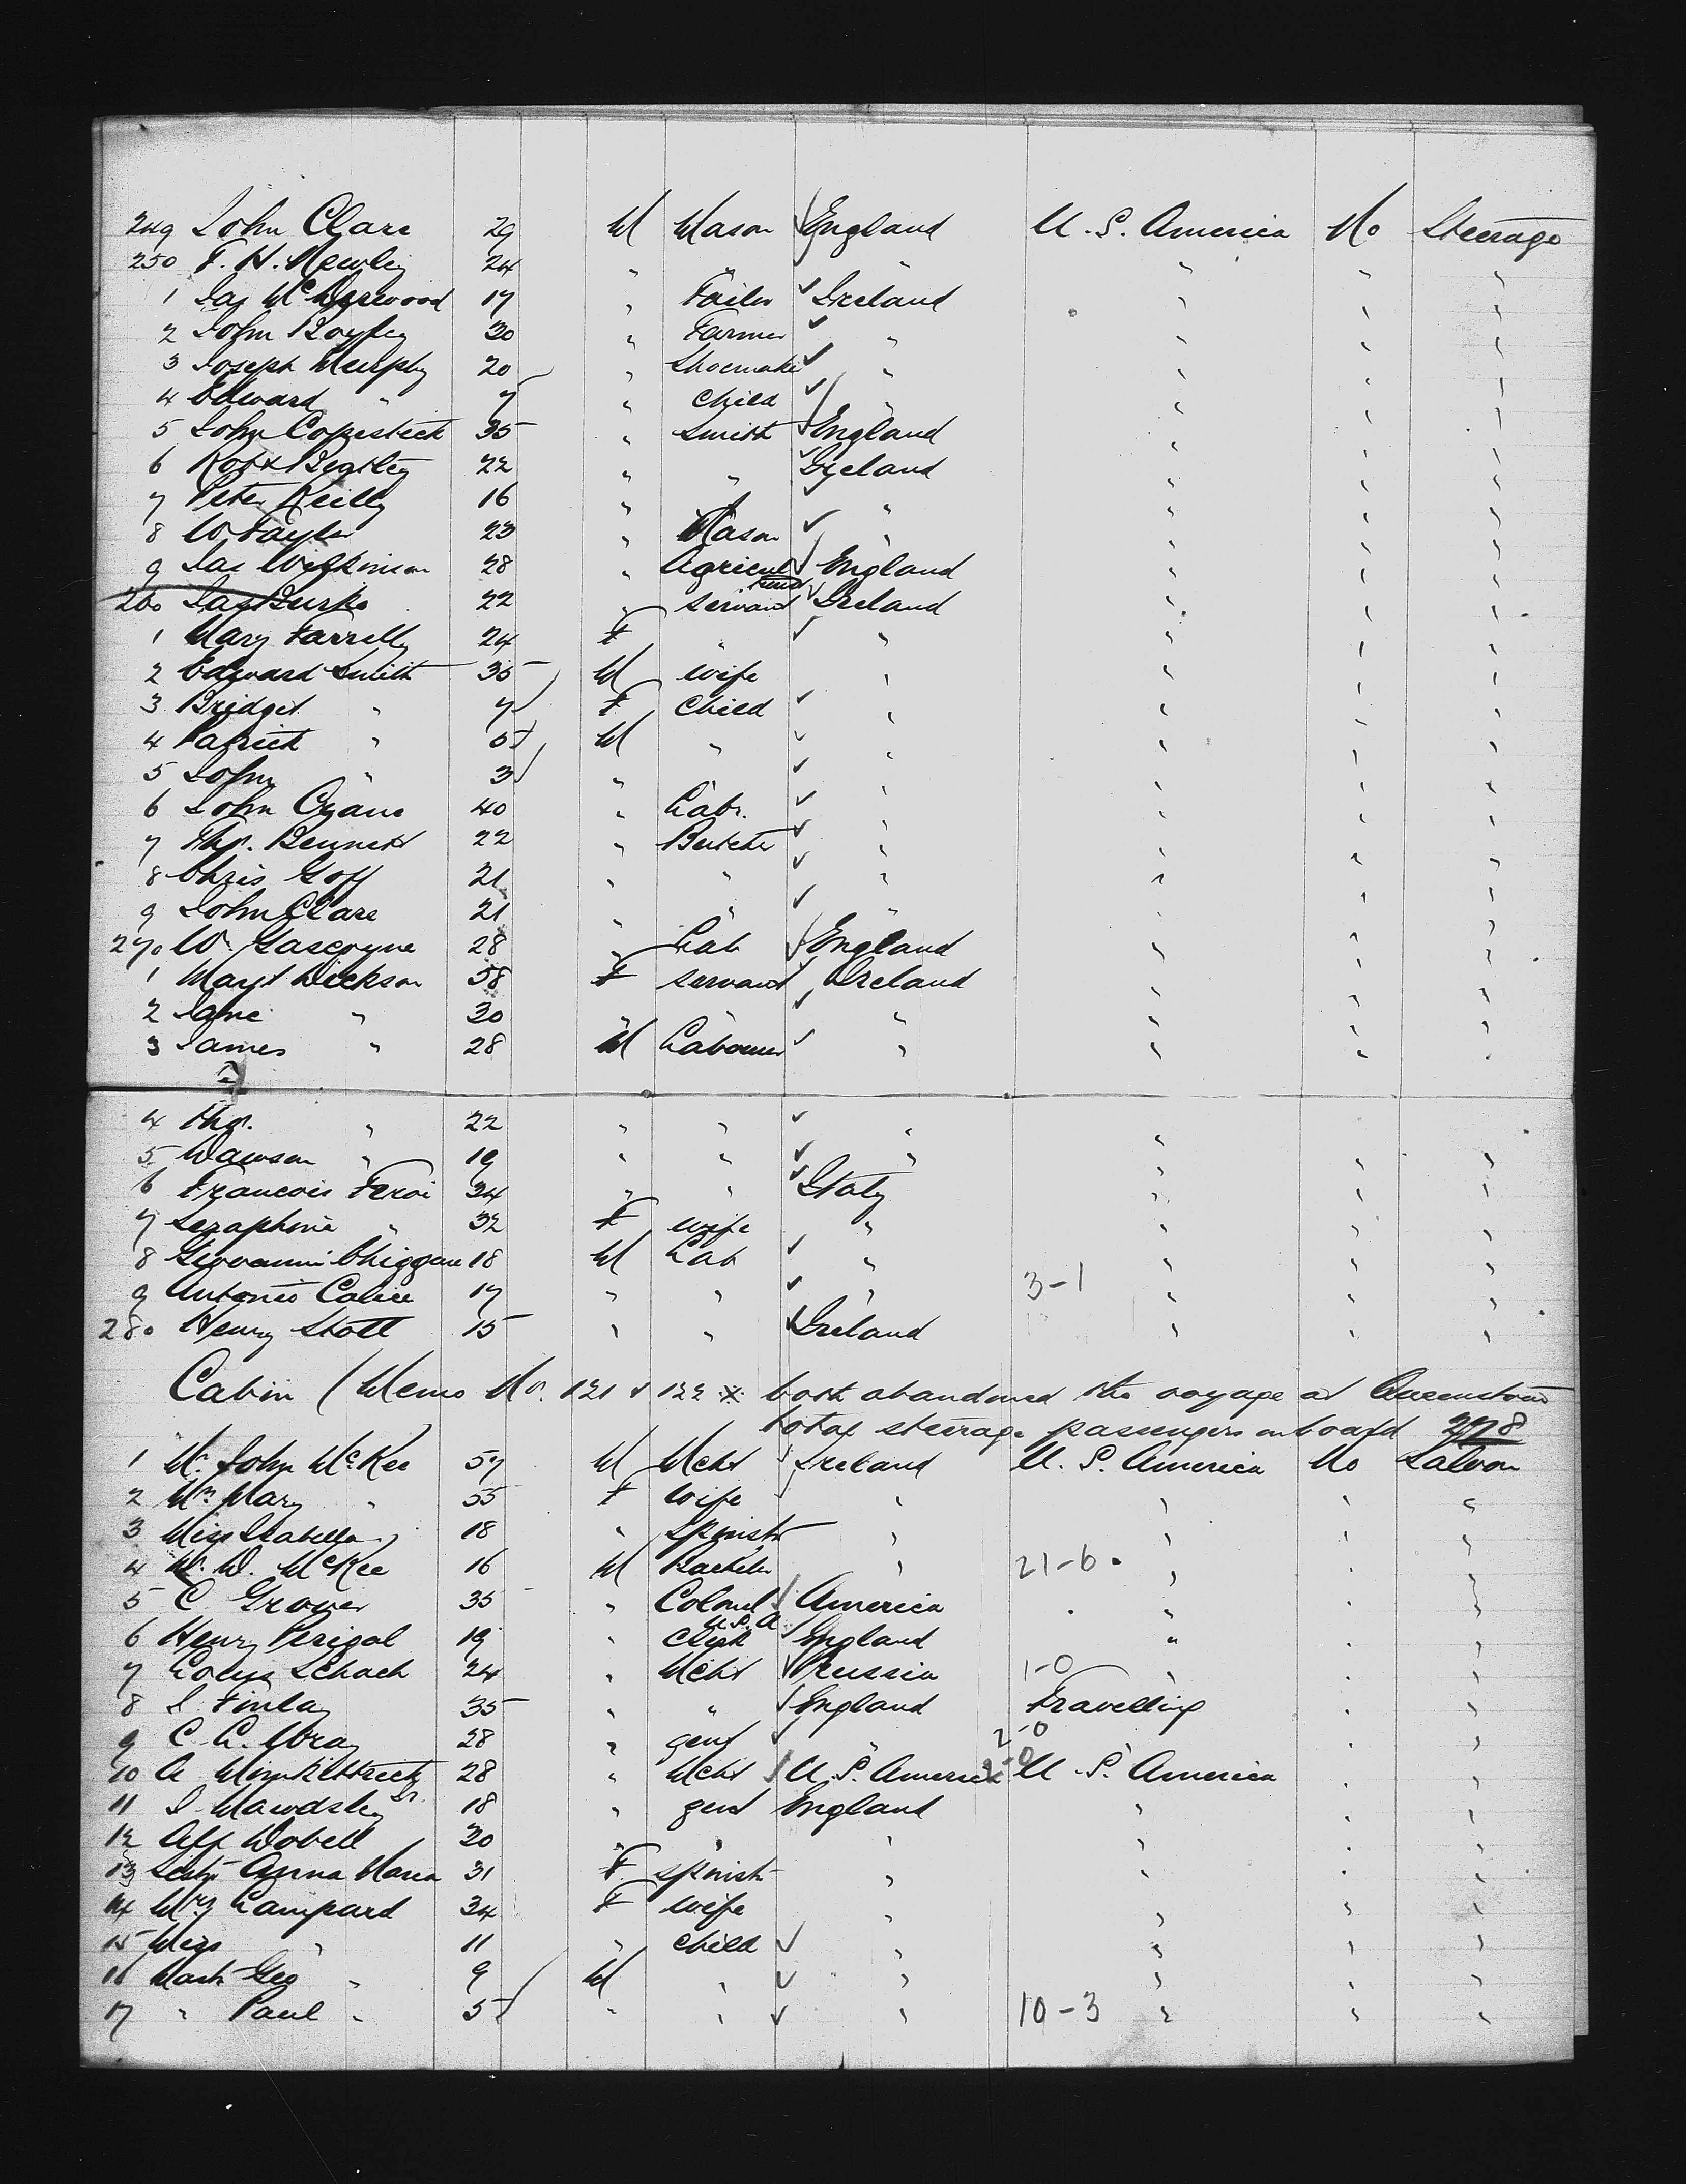 249 John Clare 29 M Mason England U. S. America No Steerage
250 F. H. Newley 24 " " " " " "
1 Jas Mc 17 " Tailor Ireland " " "
2 John 30 " Farmer " " " "
3 Joseph Murphy 20 " Shoemaker " " " "
4 Edward " 7 " Child " " " "
5 John Copestick 35 " Smith England " " "
6 Robt Begley 22 " " Ireland " " "
7 Peter Reilly 16 " " " " " "
8 W Taylor 23 " Mason " " " "
9 Jas Wilkinson 28 " Agricul England " " "
260 Jas Burke 22 " servant Ireland " " "
1 Mary Farrelly 24 F " " " " "
2 Edward Smith 35 M wife " " " "
3 Bridget " 7 F Child " " " "
4 Patrick " 5 M " " " " "
5 John " 3 " " " " " "
6 John Crane 40 " Labr. " " " "
7 Thos. Bennett 22 " Butcher " " " "
8 Chris Goff 21 " " " " " "
9 John Clare 21 " " " " " "
270 W. Gascoyne 28 " Lab England " " "
1 Margt Dickson 58 F servant Ireland " " "
2 Jane " 30 " " " " " "
3 James " 28 M Labourer " " " "
4 Thos. " 22 " " " "
5 Dawson " 19 " " " " " "
6 Francois Feroi 34 " " Italy " " "
7 Seraphine " 32 F wife " " " "
8 Giovanni 18 M Lab " " " "
9 Antonio 17 " " " 3-1 " " "
280 Henry Stott 15 " " Ireland " " "
Cabin (Memo No. 121 & 122 x both abandoned the voyage at Queenstown
total steerage passengers on board 278
1 Mr. John McKee 57 M Mcht Ireland U. S. America No Saloon
2 Mrs Mary " 55 F Wife " " " "
3 Miss Isabella " 18 " Spinstr " " " "
4 Mr. D. McKee 16 M Bachelor " 21-6 " " "
5 C Grover 35 " Colonel America " " "
U.S.A
6 Henry Perigal 19 " Clerk England " " "
7 Louis Schach 24 " Mcht Prussia 1-0 " " "
8 J Finlay 35 " " England Travelling " "
9 C. C. Wray 28 " gent " 2-0 " "
10 A 28 " Mcht U. S. America U. S. America " "
11 J Mawdsley Jr. 18 " gent England " " "
12 Alf Dobell 20 " " " " " "
13 Anna Maria 31 F spinstr " " " "
14 Mrs Lampard 34 F wife " " " "
15 Miss " 11 " child " " " "
16 Mastr Geo " 9 M " " " " "
17 " Paul " 5 " " " 10-3 " " "